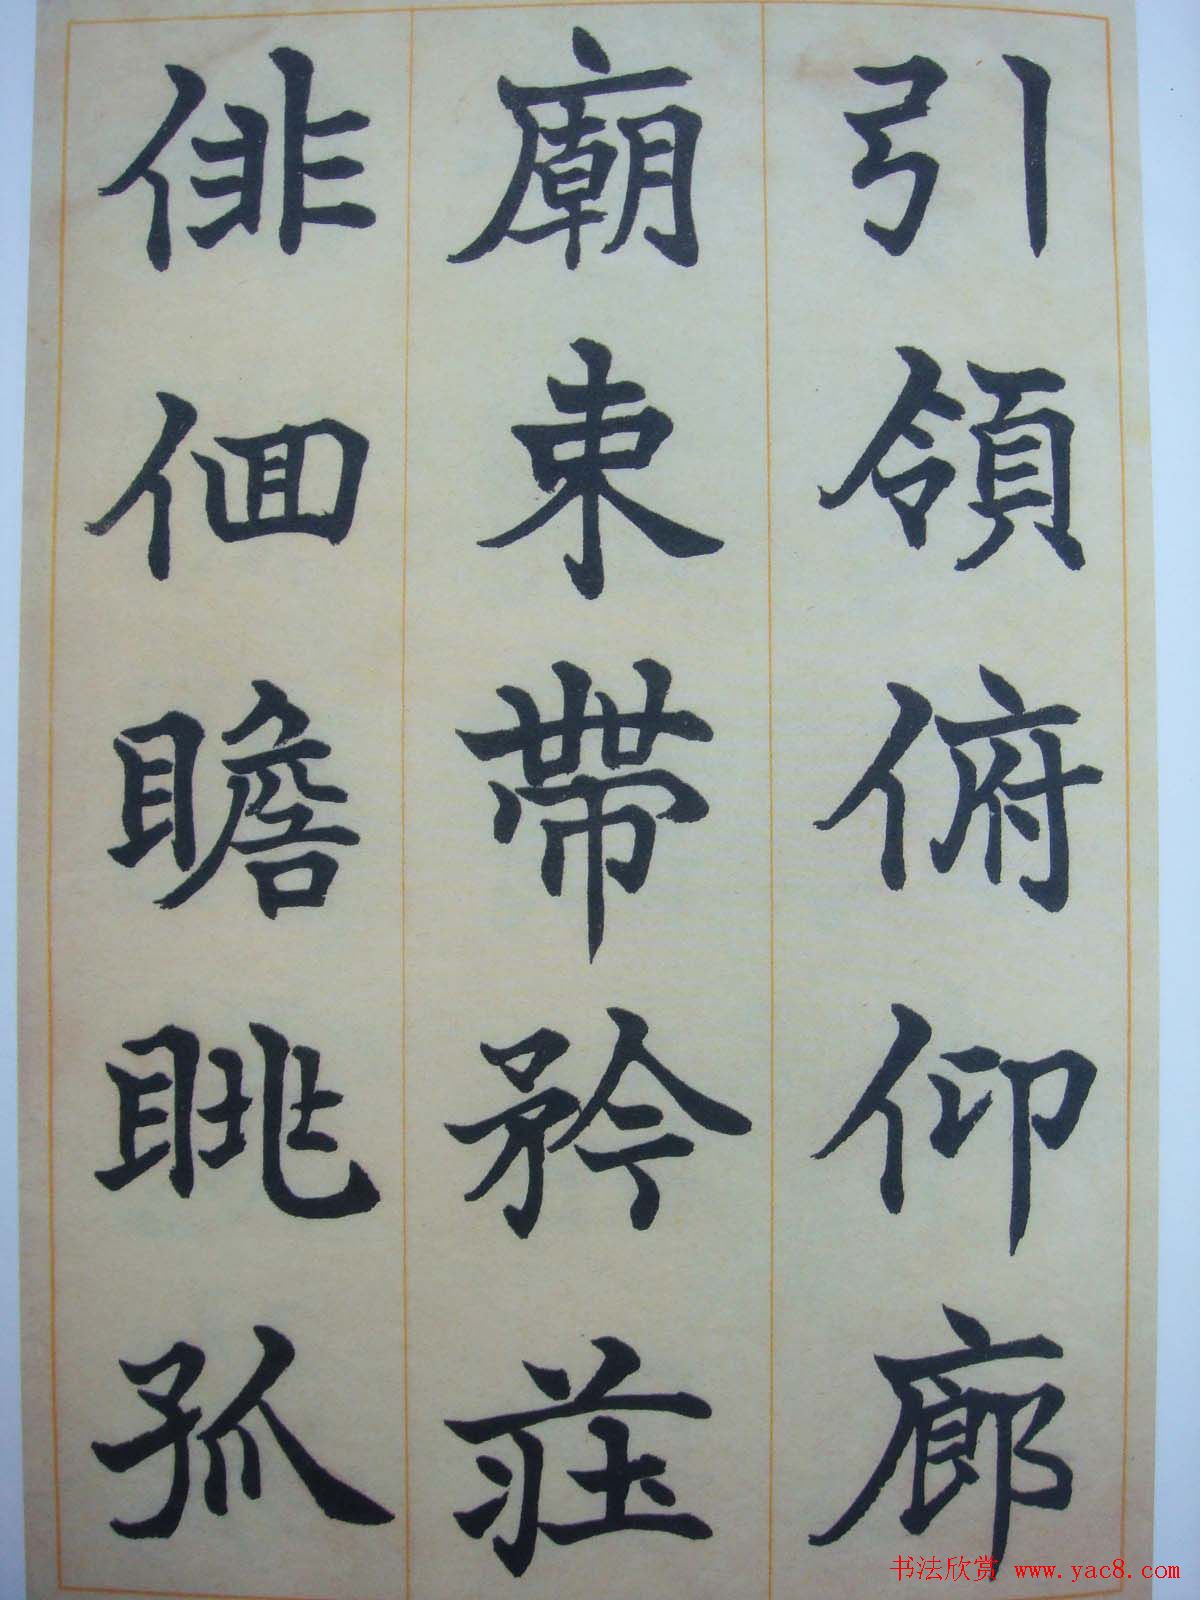 引領俯仰廊
廟束帶矜莊
俳佪瞻眺孤
书法欣赏 www.yac8.com